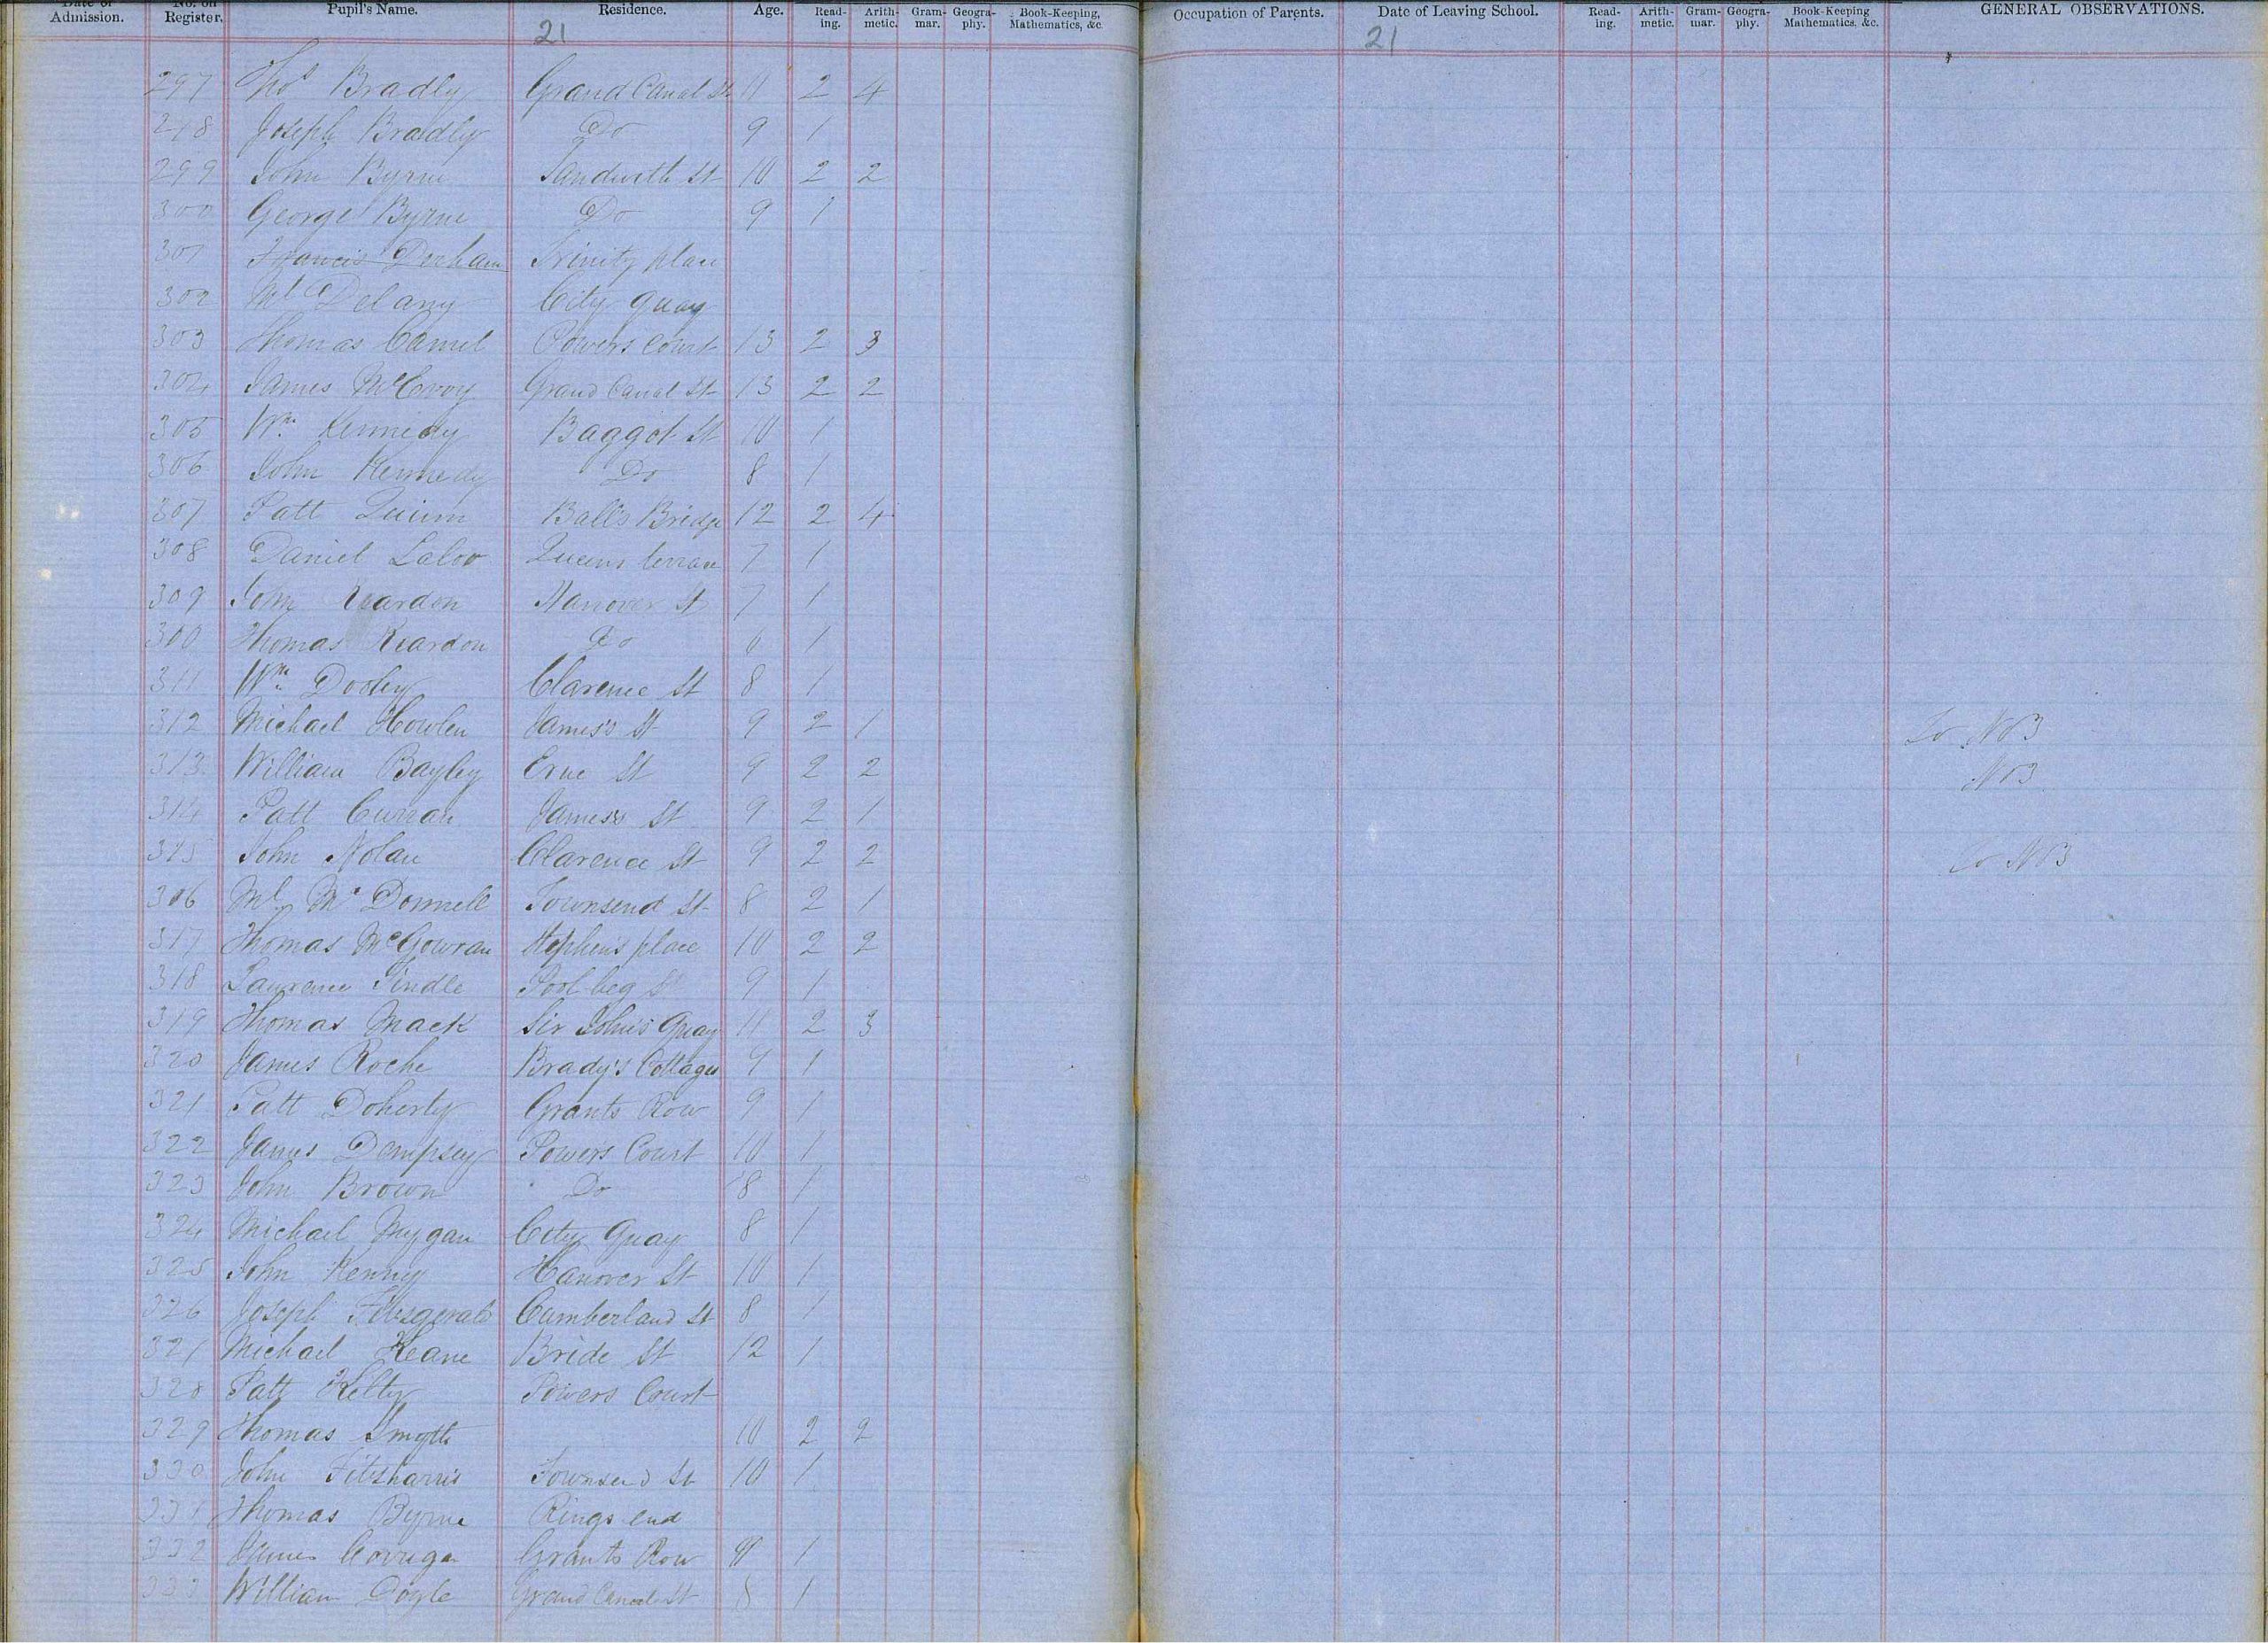 Date of Admission. No. on Register. Pupil's Name. Residence. Age. Reading. Arithmetic. Grammar. Geography. Book-Keeping, Mathematics, &c. Occupation of Parents. Date of Leaving School. Reading. Arithmetic. Grammar. Geography. Book-Keeping Mathematics, &c. GENERAL OBSERVATIONS.
21 21
297 Thos Bradly Grand Canal St 11 2 4
298 Joseph Bradly Do 9 1
299 John Byrne Sandwith St 10 2 2
300 George Byrne Do 9 1
301 Francis Derham Trinity place
302 Ml Delany City Quay
303 Thomas Camel Powers Court 13 2 3
304 James McEvoy Grand Canal St 13 2 2
305 Wm Kennedy Baggot St 10 1
306 John Kennedy Do 8 1
307 Patt Quinn Ball's Bridge 12 2 4
308 Daniel Lalor Queens terrace 7 1
309 John Reardon Hanover St 7 1
300 Thomas Reardon Do 6 1
311 Wm Dooley Clarence St 8 1
312 Michael Howlen James's St 9 2 1 To No 3
313 William Bayley Erne St 9 2 2 No 3
314 Patt Curran James's St 9 2 1
315 John Nolan Clarence St 9 2 2 To No 3
306 Ml Mc Donnell Townsend St 8 2 1
317 Thomas McGowran Stephen's place 10 2 2
318 Laurence Tindle Pool beg St 9 1
319 Thomas Mack Sir John's Quay 11 2 3
320 James Roche Brady's Cottages 9 1
321 Patt Doherty Grants Row 9 1
322 James Dempsey Powers Court 10 1
323 John Brown Do 8 1
324 Michael City Quay 8 1
325 John Kenny Hanover St 10 1
326 Joseph Fitzgerald Cumberland St 8 1
327 Michael Keane Bride St 12 1
328 Patt Kelly Powers Court
329 Thomas Smyth 10 2 2
330 John Fitzharris Townsend St 10 1
331 Thomas Byrne Rings end
332 James Corrigan Grants Row 1
333 William Doyle Grand Canal St 8 1